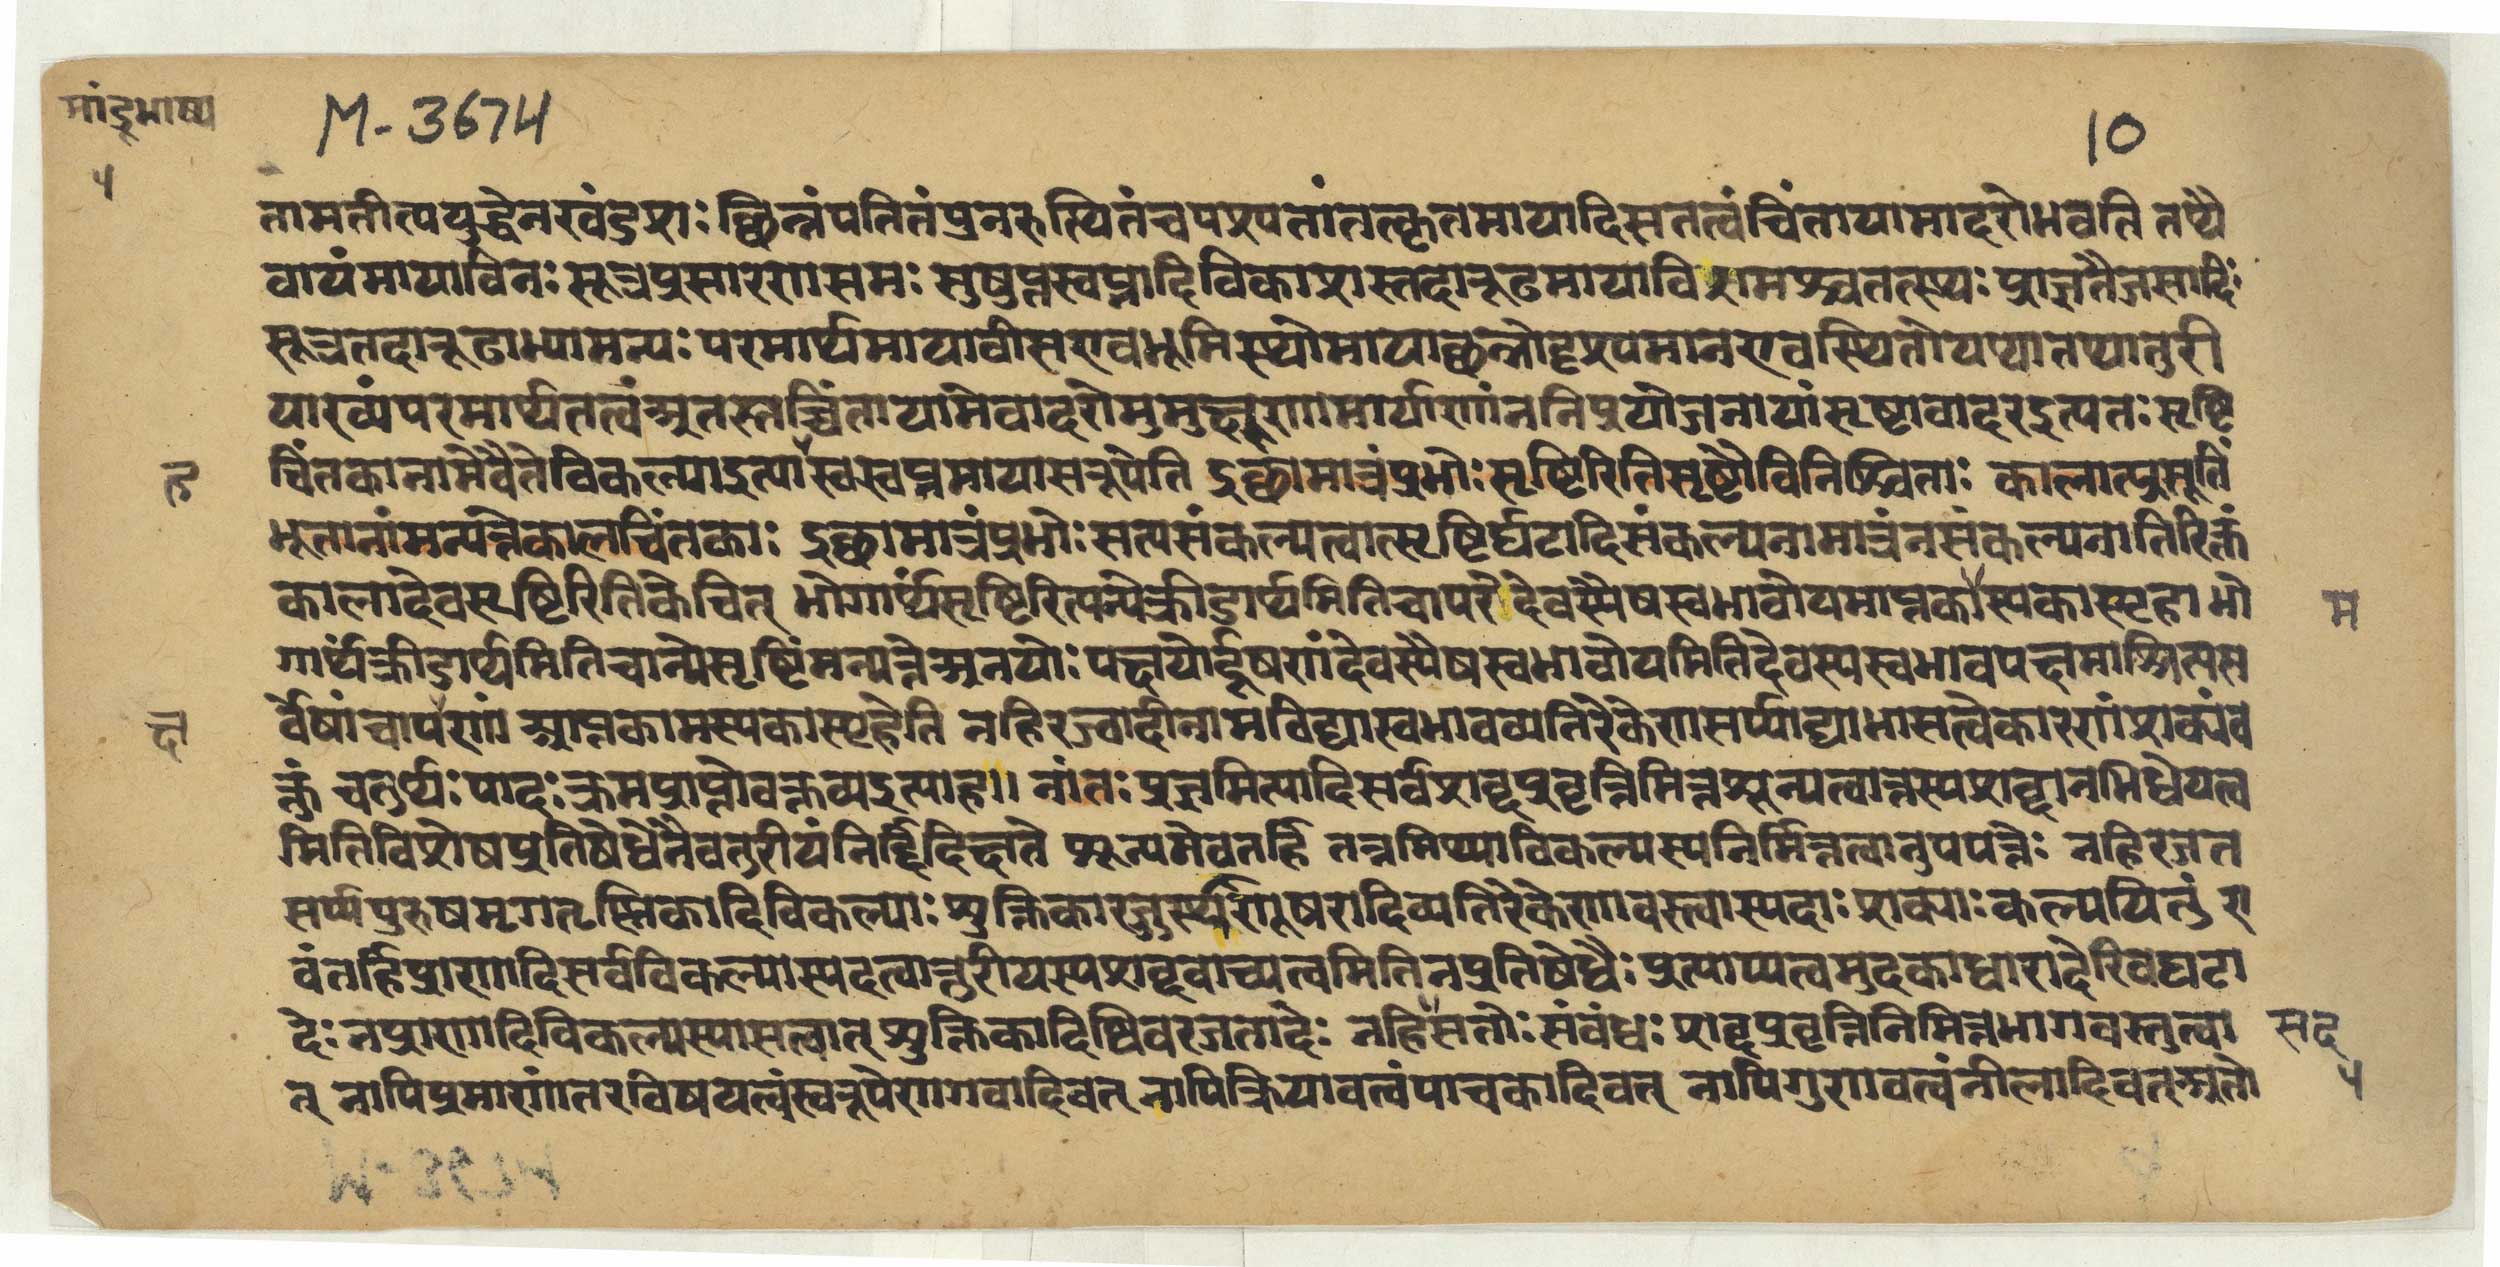 मांडूभाष्य
५
M-3674
10
तामतीत्ययुद्धेनखंडशः छिन्नंपतितंपुनरुत्थितंचपश्यतांतत्कृतमायादिसतत्वंचिंतायामादरोभवति तथै
वायंमायाविनः सूत्रप्रसारणसमः सुषुप्तस्वप्नादिविकाशस्तदारूढमायाविशमश्चतत्स्थः प्राज्ञतैजसादिः
सूत्रतदारूढाभ्यामन्यः परमार्थमायावीसएवभूमिस्थोमायाछन्नोदृश्यमानएवस्थितोयथातथातुरी
याख्यंपरमार्थतत्वंअतस्तच्चिंतायामेवादरोमुमुक्षूणामार्याणांननिप्रयोजनायांसृष्टावादरइत्यतः सृष्टि
चिंतकानामेवैतेविकल्पाइत्या स्वस्वप्नमायासरूपेति इच्छामात्रंप्रभोः सृष्टिरितिसृष्टौविनिश्चिताः कालात्प्रसूतिं
ह
भूतानांमन्यन्तेकालचिंतकाः इच्छामात्रंप्रभोः सत्यसंकल्पत्वात्सृष्टिर्घटादिसंकल्पनामात्रंनसंकल्पनातिरिक्तं
कालादेवसृष्टिरितिकेचित् भोगार्थंसृष्टिरित्यन्येक्रीडार्थमितिचापरे देवस्यैषस्वभावोयमाप्तकास्यकास्पृहा भो
म
गार्थंक्रीडार्थमितिचान्येसृष्टिंमन्यन्तेअनयोः पक्षयोर्दूषणंदेवस्यैषस्वभावोयमितिदेवस्यस्वभावपक्षमाश्रित्यस
र्वेषांचापणां आप्तकामस्यकास्पृहेति नहिरज्वादीनामविद्यास्वभावव्यतिरेकेणसर्प्पाद्याभासत्वेकारणंशक्यंव
क्तुं चतुर्थः पादः क्रमप्राप्तोवक्तव्यइत्याह॥ नांतः प्रज्ञमित्यादिसर्वशब्दप्रवृत्तिनिमित्तशून्यत्वात्तस्यशब्दानभिधेयत्व
मितिविशेषप्रतिषेधेनैवतुरीयंनिर्द्दिदिक्षते शून्यमेवतर्हि तन्नमिथ्याविकल्पस्यनिर्मित्तत्वानुपपत्तेः नहिरजत
सर्प्पपुरुषमृगतृष्णिकादिविकल्पाः शुक्तिकारज्जुस्थाणूषरादिव्यतिरेकेणावस्त्वास्पदाः शक्याः कल्पयितुं ए
वंतर्हिप्राणादिसर्वविकल्पास्पदत्वात्तुरीयस्यशब्दवाच्यत्वमितिनप्रतिषेधैः प्रत्याय्यत्वमुदकाधारादेरिवघटा
देः नप्राणादिविकल्पस्यासत्वात् शुक्तिकादिष्विवरजतादेः नहिसतोः संबंधः शब्दप्रवृत्तिनिमित्तभागवस्तुत्वा
सद
त् नापिप्रमाणांतरविषयत्वंस्वरूपेणगवादिवत् नापिक्रियावत्वंपाचकादिवत् नापिगुणवत्वंनीलादिवत्अतो
५